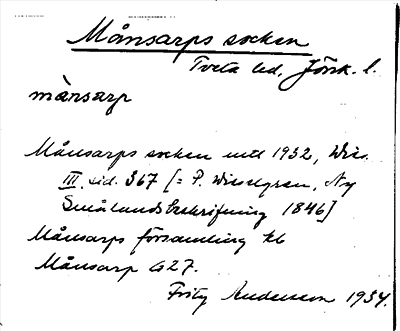 Månsarps socken
Tveta hd, Jönk. l.
mànsarp
Månsarps socken intl 1932, Wies.
III, sid. 367 [= P. Wieselgren, Ny
Smålandsbeskrifning 1846]
Månsarps församling kb
Månsarp G27.
Fritz Andersson 1934.